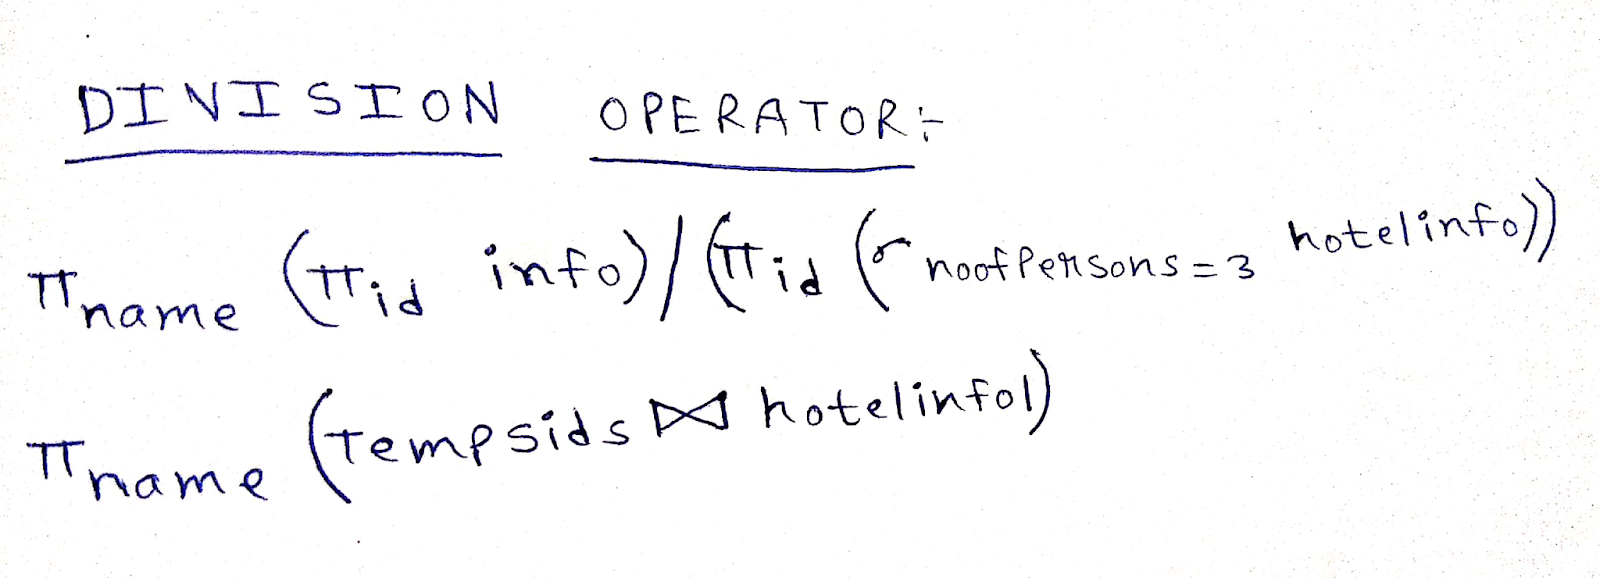 DIVISION OPERATOR:-
πname (πid info)/(πid (σ noofPersons=3 hotelinfo))
πname (Tempsids ⋈ hotelinfo1)